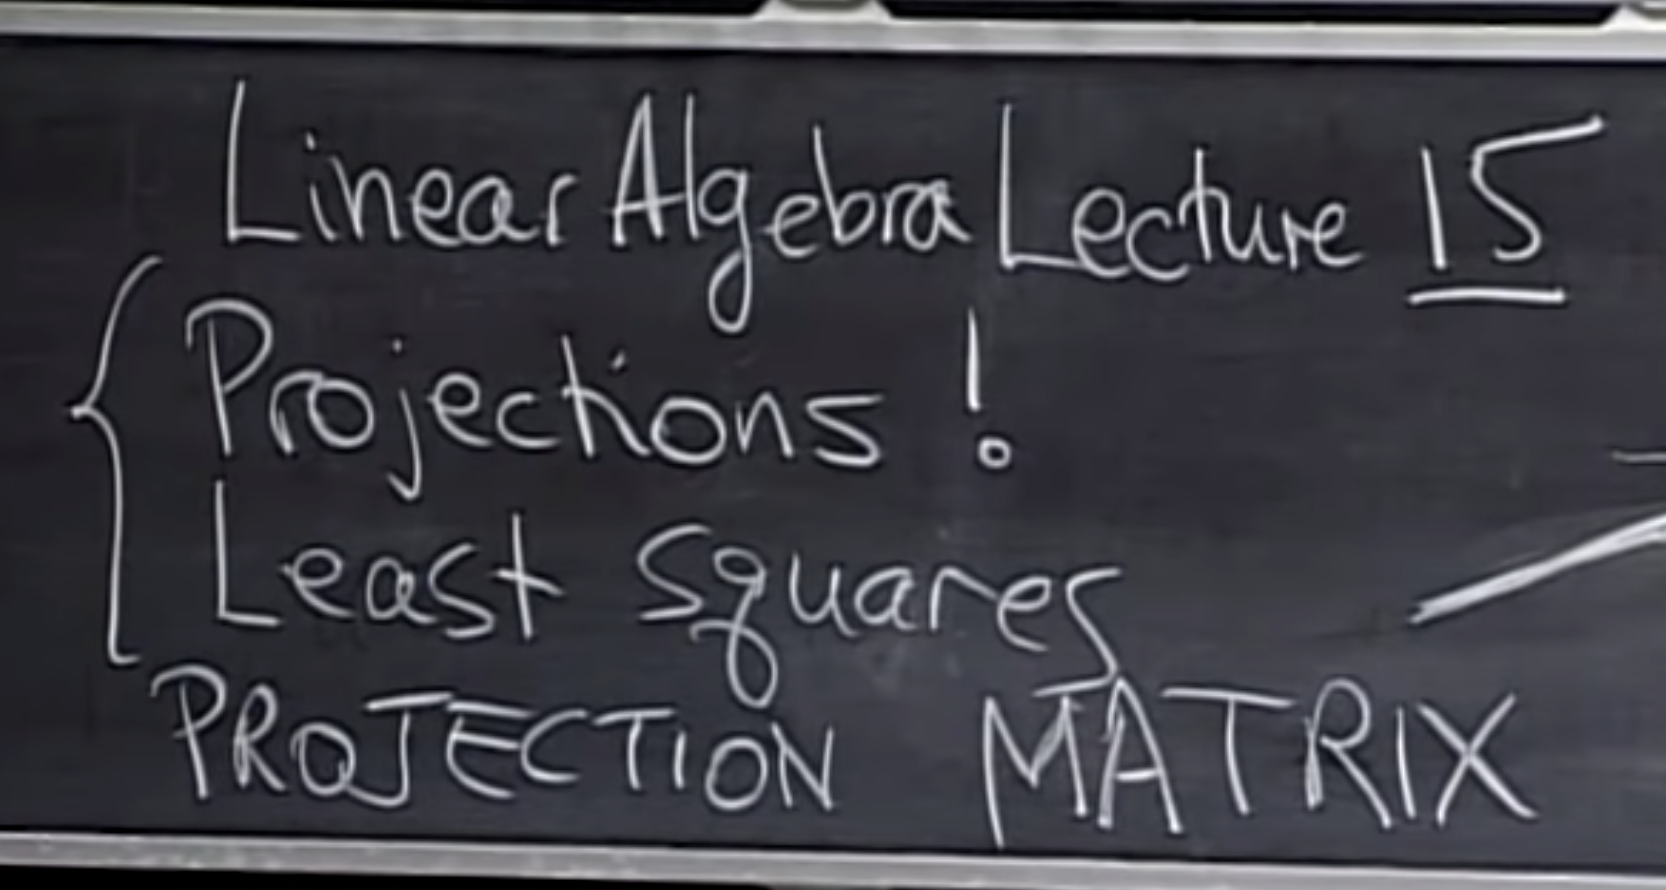 Linear Algebra Lecture 15
Projections !
Least squares
PROJECTION MATRIX